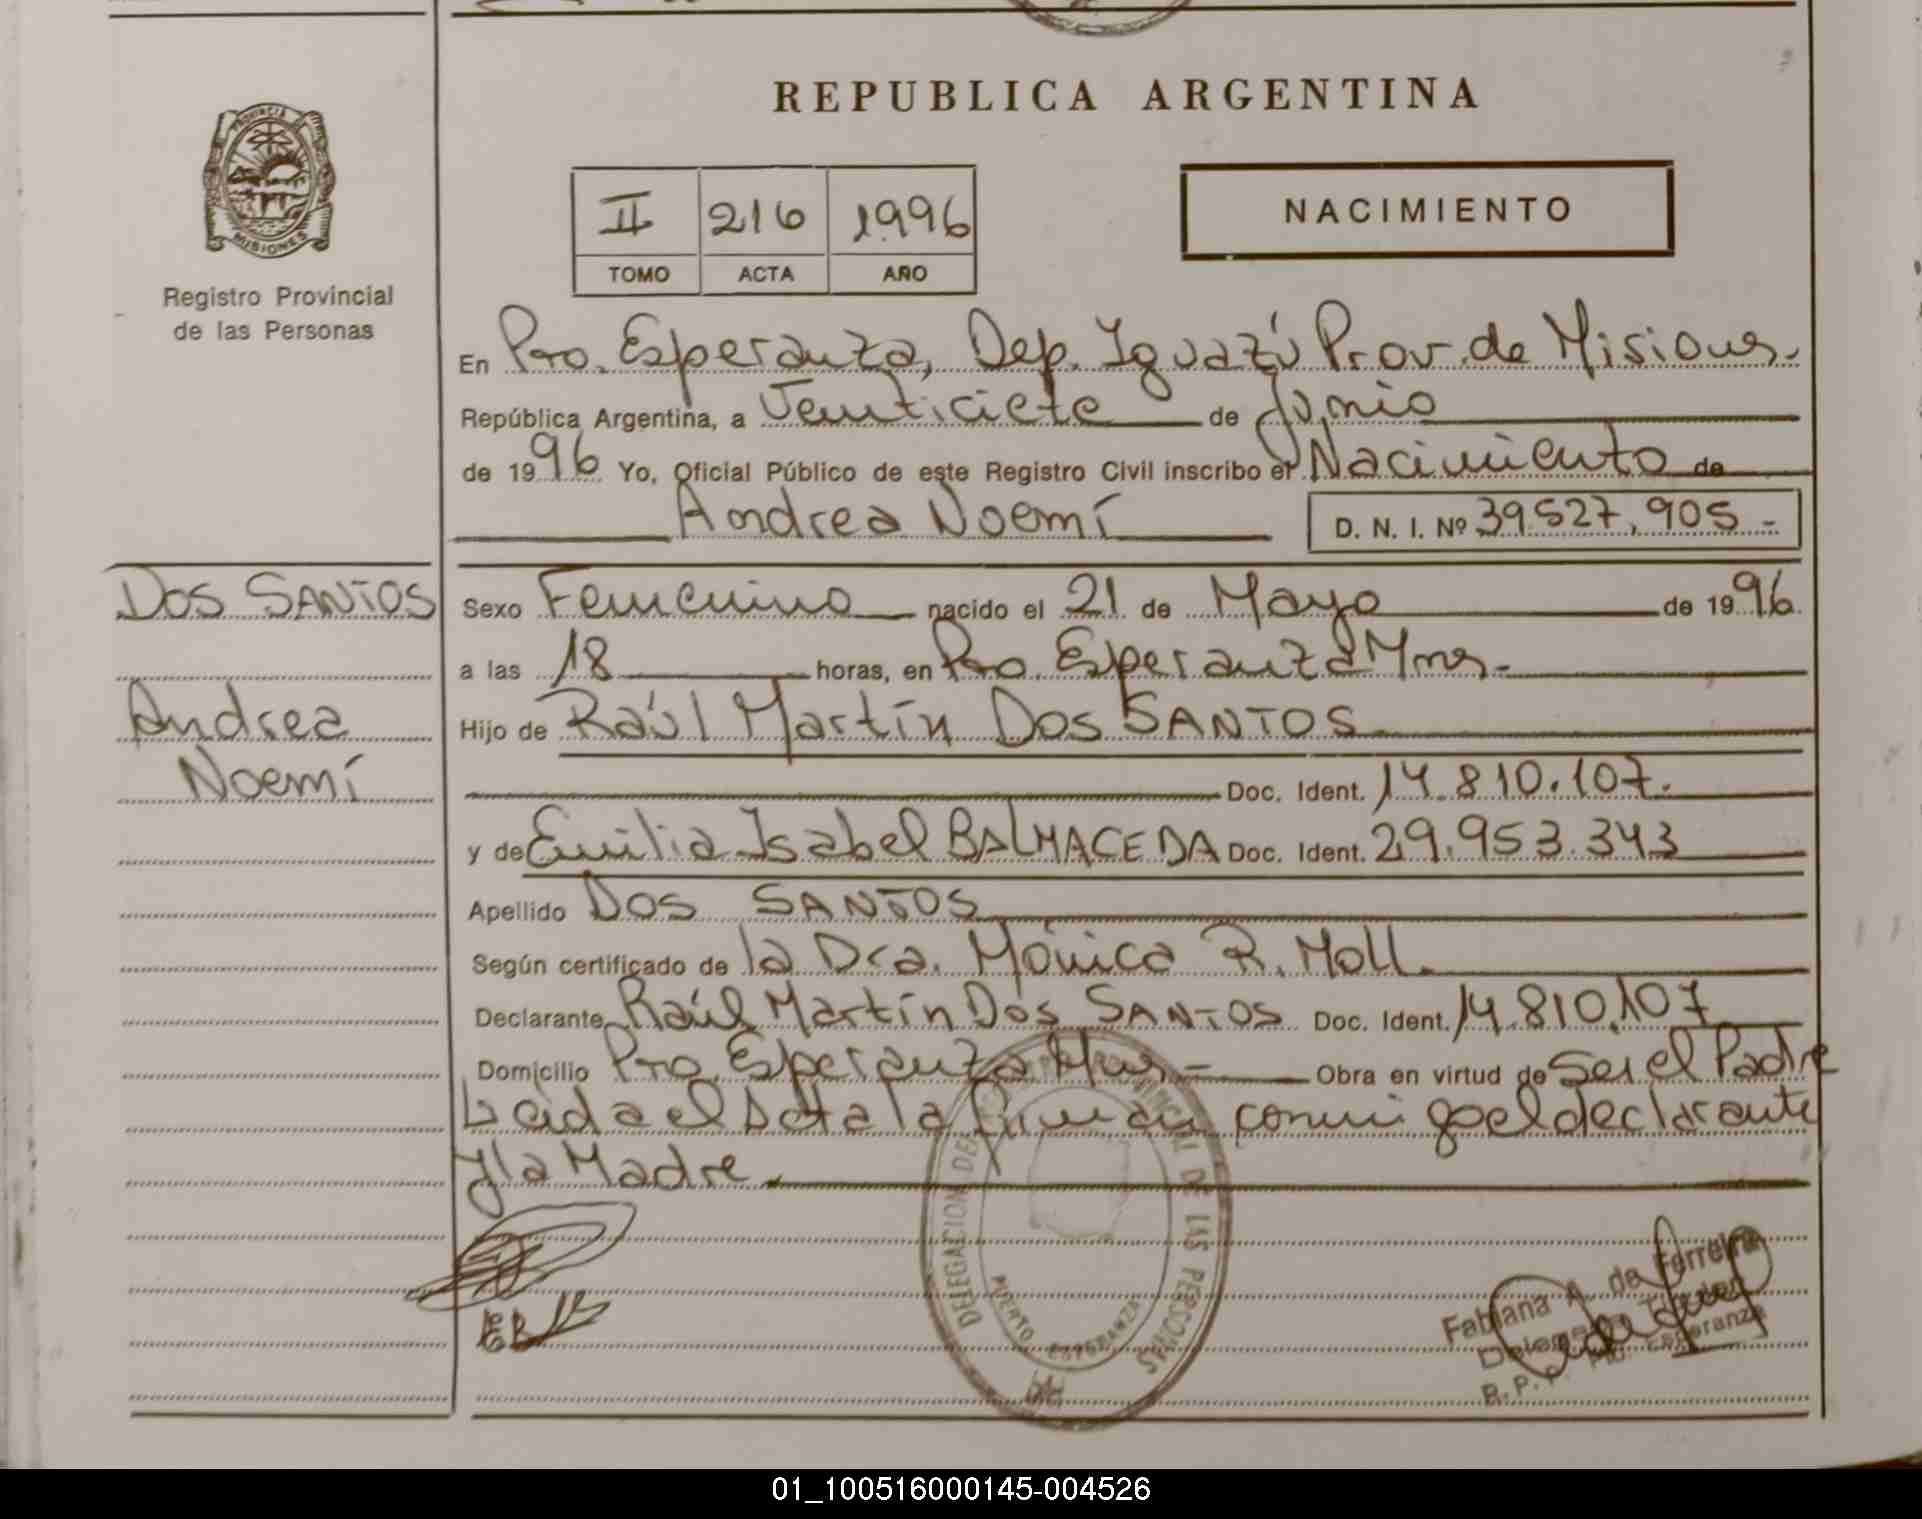 REPUBLICA ARGENTINA
PROVINCIA DE
MISIONES
Registro Provincial
de las Personas
II 216 1996
TOMO ACTA AÑO
NACIMIENTO
En Pto. Esperanza, Dep. Iguazú Prov. de Misiones.
República Argentina, a Venticiete de Junio
de 1996 Yo, Oficial Público de este Registro Civil inscribo el Nacimiento de
Andrea Noemí D. N. I. Nº 39.527.905 -
DOS SANTOS
Andrea
Noemí
Sexo Femenino nacido el 21 de Mayo de 1996.
a las 18 horas, en Pto. Esperanza Mnes.
Hijo de Raúl Martín DOS SANTOS
Doc. Ident. 14.810.107.
y de Emilia Isabel BALMACEDA Doc. Ident. 29.953.343
Apellido DOS SANTOS
Según certificado de la Dra. Mónica R. Moll.
Declarante Raúl Martín Dos SANTOS Doc. Ident. 14.810.107
Domicilio Pto. Esperanza Mnes - Obra en virtud de Ser el Padre
Leida el Acta la firman conmigo el declarante
y la Madre.
DELEGACION DEL PROVINCIAL DE LAS PERSONAS
PUERTO ESPERANZA
EB
Fabiana A. de Ferreira
Delegada Titular
R.P.P. Pto. Esperanza
01_100516000145-004526